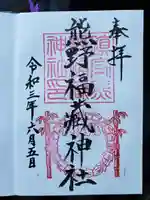 奉拝
熊野福藏神社
令和三年六月五日